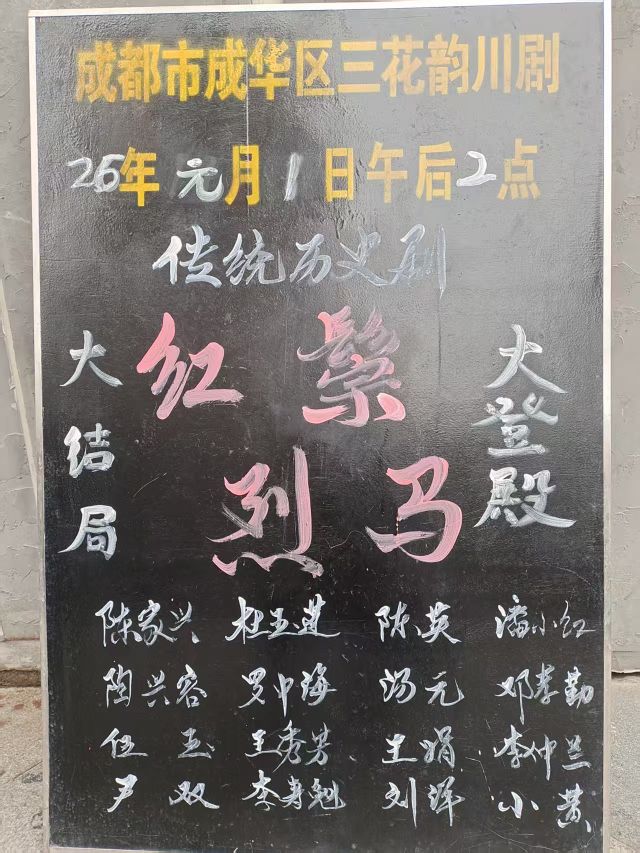 成都市成华区三花韵川剧
26年元月1日午后2点
传统历史剧
大结局
红鬃烈马
大登殿
陈家兴 杜玉进 陈英 潘小红
陶兴容 罗中海 汤元 邓孝勤
伍玉 王秀芳 王娟 李仲兰
尹双 李寿魁 刘洋 小黄